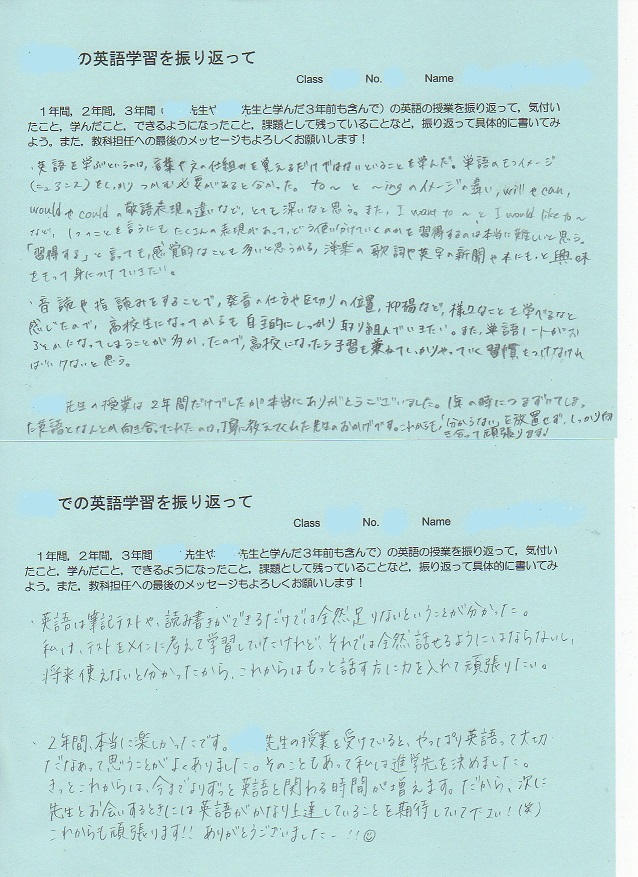 の英語学習を振り返って
Class No. Name
1年間，2年間，3年間（ 先生や 先生と学んだ3年前も含んで）の英語の授業を振り返って，気付い
たこと，学んだこと，できるようになったこと，課題として残っていることなど，振り返って具体的に書いてみ
よう。また，教科担任への最後のメッセージもよろしくお願いします！
・英語を学ぶというのは、言葉や文の仕組みを覚えるだけではないということを学んだ。単語のもつイメージ
(ニュアンス)をしっかりつかむ必要があると分かった。to～と～ingのイメージの違い,willやcan,
wouldやcouldの敬語表現の違いなど、とても深いなと思う。また、I want to～とI would like to～
など、1つのことを言うにもたくさんの表現があって、どう使い分けていくのかを習得するのは本当に難しいと思う。
「習得する」と言っても、感覚的なことも多いと思うから、洋楽の歌詞や英字の新聞や本にもっと興味
をもって身につけていきたい。
・音読や指読みをすることで、発音の仕方や区切りの位置、抑揚など、様々なことを学べるなと
感じたので、高校生になってからも自主的にしっかり取り組んでいきたい。また、単語ノートがお
ろそかになってしまうことが多かったので、高校になったら予習を兼ねてしっかりやっていく習慣をつけなけれ
ばいけないと思う。
先生の授業は2年間だけでしたが本当にありがとうございました。1年の時につまずいてしまっ
た英語となんとか向き合ってこれたのは、丁寧に教えてくれた先生のおかげです。これからも,「分からない」を放置せず、しっかり向
き合って頑張ります!
での英語学習を振り返って
Class No. Name
1年間，2年間，3年間 先生や 先生と学んだ3年前も含んで）の英語の授業を振り返って，気付い
たこと，学んだこと，できるようになったこと，課題として残っていることなど，振り返って具体的に書いてみ
よう。また，教科担任への最後のメッセージもよろしくお願いします！
・英語は筆記テストや、読み書きができるだけでは全然足りないということが分かった。
私は、テストをメインに考えて学習していたけれど、それでは全然話せるようにはならないし、
将来使えないと分かったから、これからはもっと話す方に力を入れて頑張りたい。
・2年間、本当に楽しかったです。 先生の授業を受けていると、やっぱり英語って大切
だなぁって思うことがよくありました。そのこともあって私は進学先を決めました。
きっとこれからは、今までよりずっと英語と関わる時間が増えます。だから、次に
先生とお会いするときには英語がかなり上達していることを期待していて下さい!(笑)
これからも頑張ります!! ありがとうございました—!!